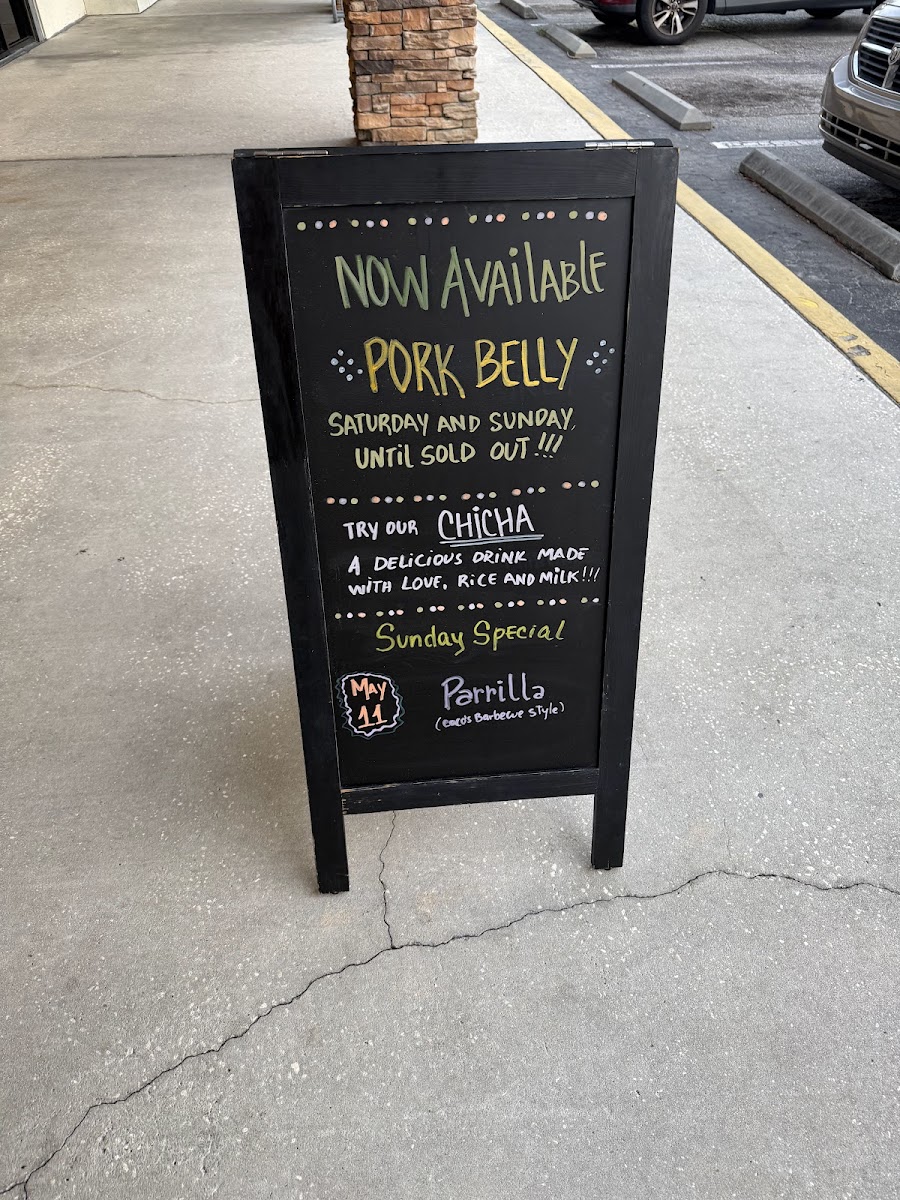 NOW AVAilABlE
PORK BELLY
SATURDAY AND SUNDAY,
UNTiL SOLD OUT !!!
TRY OUR CHiCHA
A DELiCiOUS DRiNK MADE
WiTH LOVE, RiCE AND MiLK!!!
Sunday SPECial
MAY
11
Parrilla
(COCO'S BarbecuE STyle)